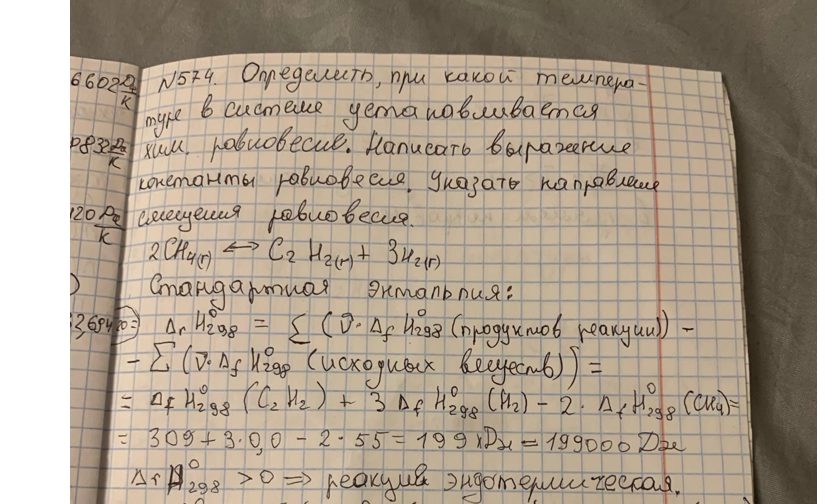 6602 Дж/К
N574. Определить, при какой темпера-
туре в системе устанавливается
832 Дж/К
хим. равновесие. Написать выражение
константы равновесия. Указать направление
120 Дж/К
смещения равновесия.
2CH4(г) ⟷ C2H2(г) + 3H2(г)
Стандартная энтальпия:
ΔrH°298 = Σ (ν·ΔfH°298 (продуктов реакции)) -
- Σ (ν·ΔfH°298 (исходных веществ)) =
= ΔfH°298 (C2H2) + 3 ΔfH°298 (H2) - 2· ΔfH°298 (CH4) =
= 309 + 3·0,0 - 2·55 = 199 кДж = 199000 Дж
ΔrH°298 > 0 => реакция эндотермическая.